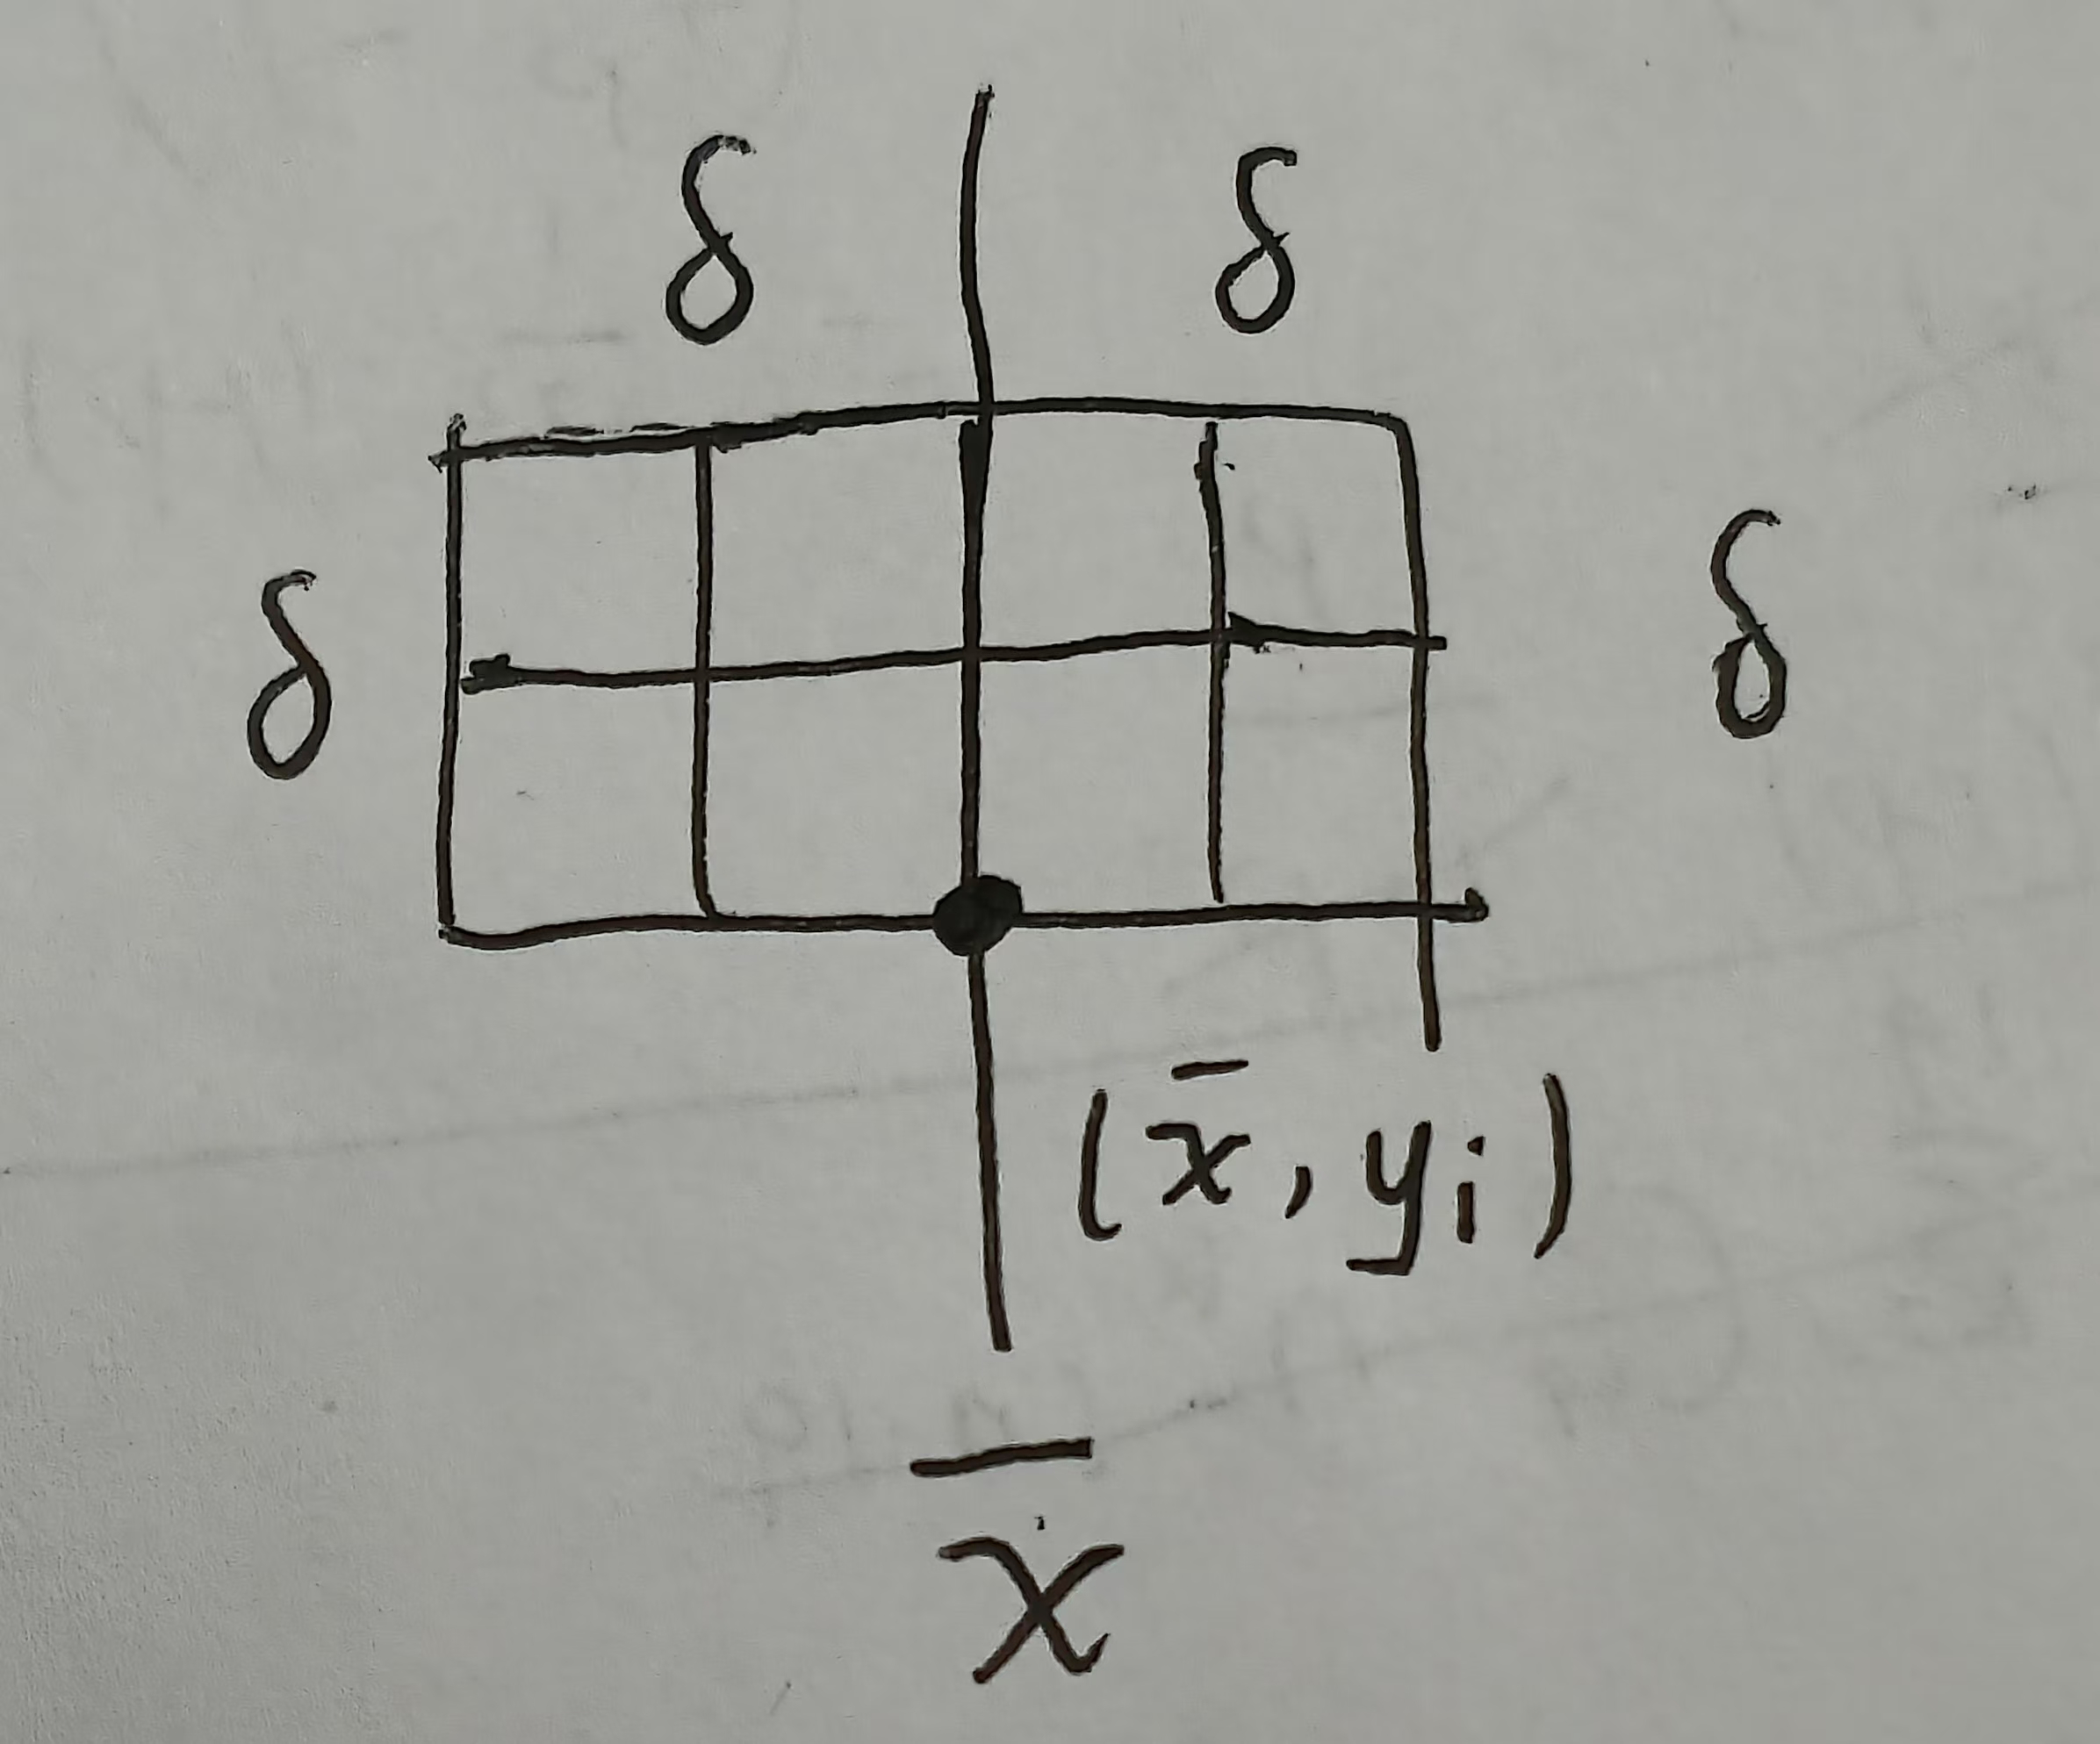 δ δ
δ δ
(x̄, yᵢ)
x̄